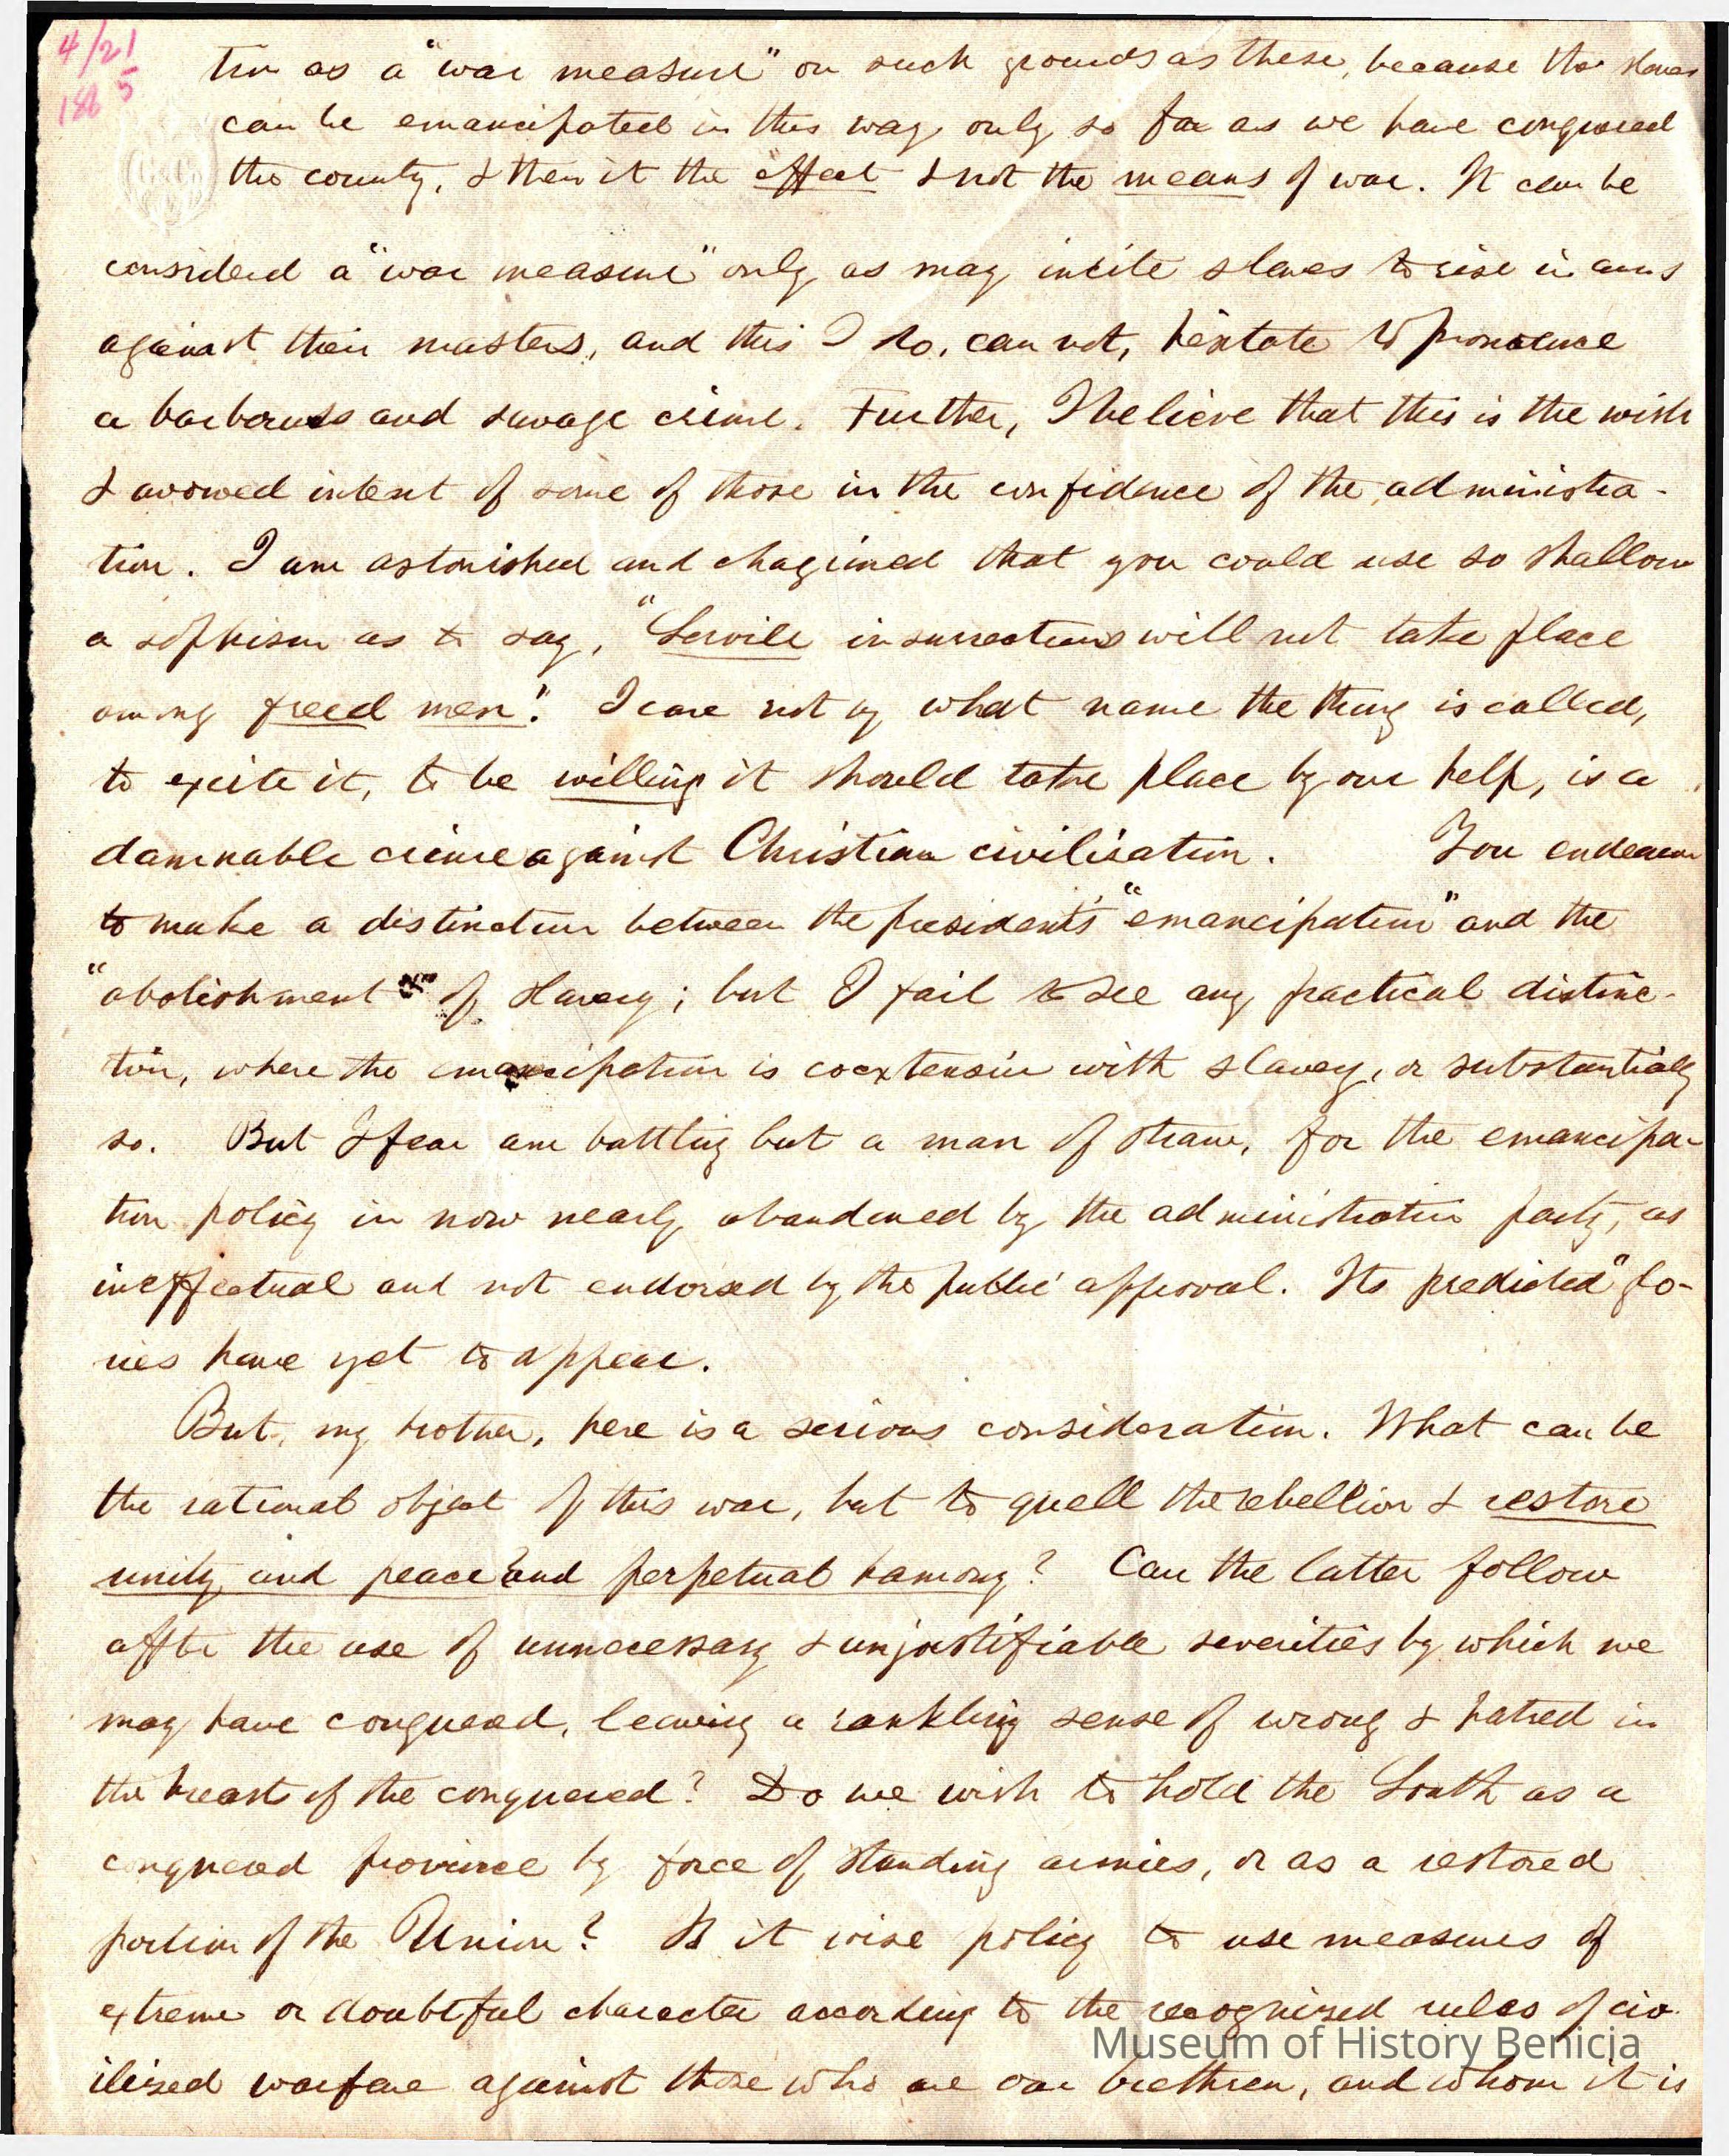 4/21
1865
tion as a "war measure" on such grounds as these, because the slaves
can be emancipated in this way only so far as we have conquered
the county, & then it the effect & not the means of war. It can be
considered a "war measure" only as may incite slaves to rise in arms
against their masters, and this I do, can not, hesitate to pronounce
a barberous and savage crime. Further, I believe that this is the wish
& avowed intent of some of those in the confidence of the administra-
tion. I am astonished and chagrined that you could use so shallow
a sophism as to say, "Servile insurrections will not take place
among freed men." I care not by what name the thing is called,
to excite it, to be willing it should take place by our help, is a
damnable crime against Christian civilisation. You endeavor
to make a distinction between the president's "emancipation" and the
"abolishment" of slavery; but I fail to see any practical distinc-
tion, where the emancipation is coextensive with slavery, or substantially
so. But I fear am battling but a man of straw, for the emancipa-
tion policy in now nearly abandoned by the administration party, as
ineffectual and not endorsed by the public approval. Its predicted "glo-
ries have yet to appear.
But, my brother, here is a serious consideration. What can be
the rational object of this war, but to quell the rebellion & restore
unity and peace and perpetual harmony? Can the latter follow
after the use of unnecessary & unjustifiable severities by which we
may have conquered, leaving a rankling sense of wrong & hatred in
the breast of the conquered? Do we wish to hold the South as a
conquered province by force of standing armies, or as a restored
portion of the Union? Is it wise policy to use measures of
extreme or doubtful character according to the recognized rules of civ-
ilized warfare against those who are our brethren, and whom it is
Museum of History Benicia